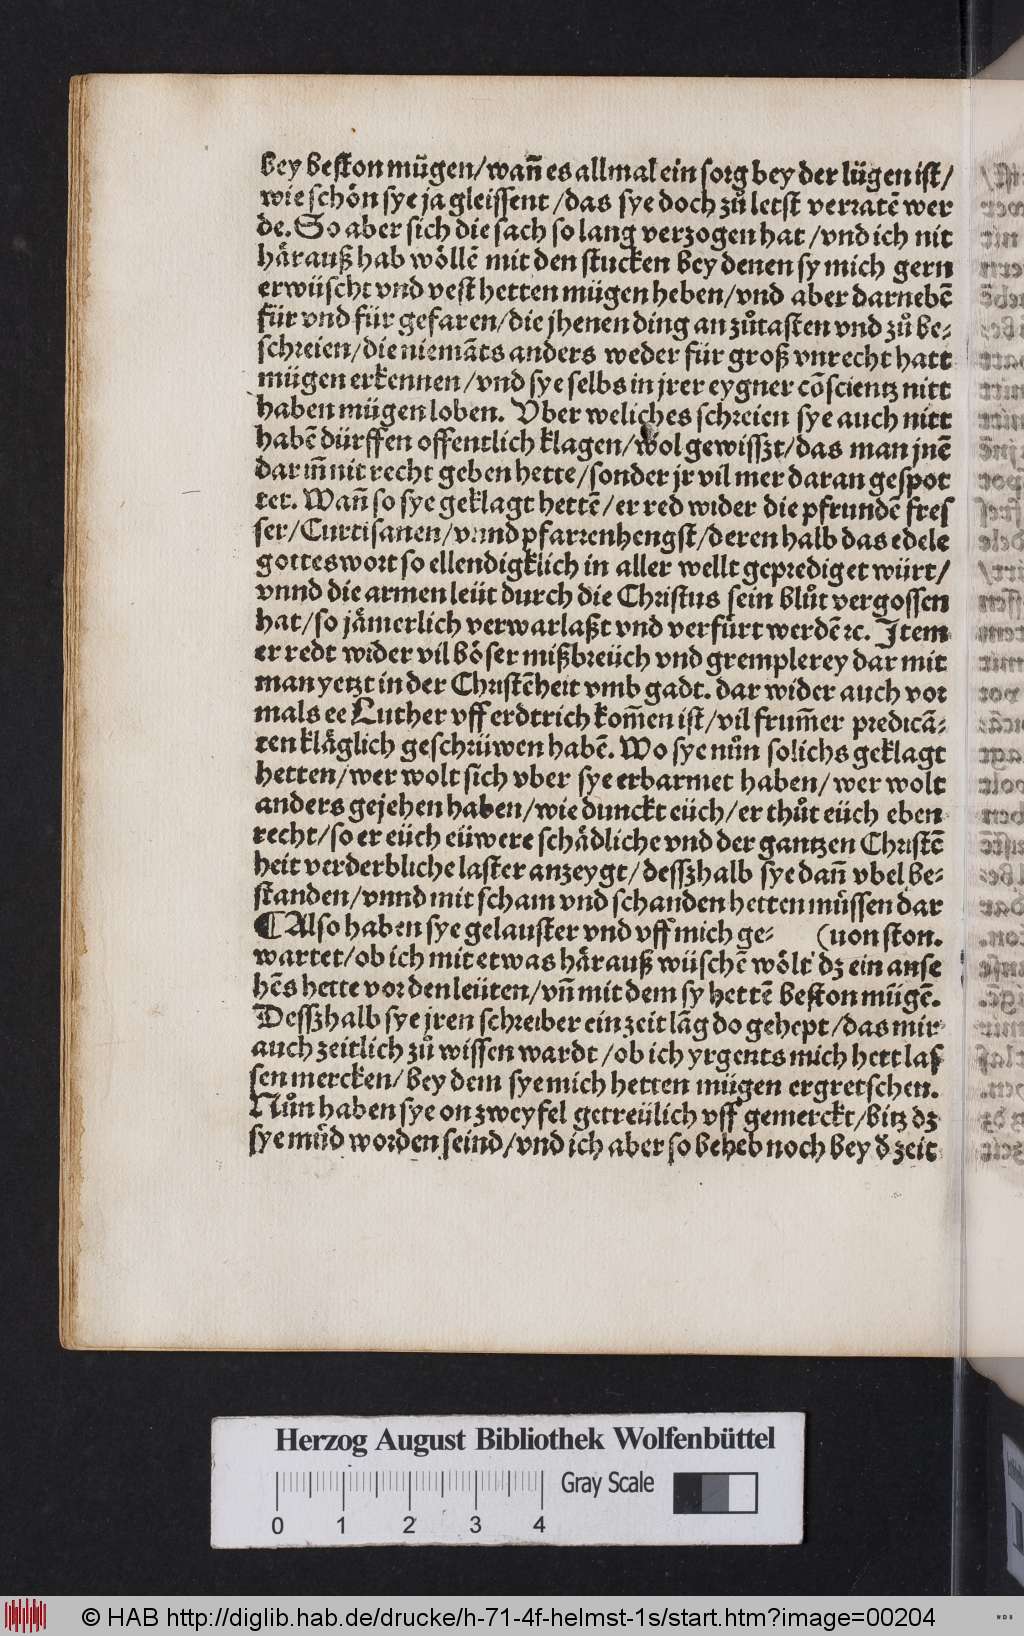 bey beſton mügen/wañ es allmal ein ſorg bey der lügen iſt/
wie ſchön ſye ja gleiſſent/das ſye doch zů letſt verratē wer
de. So aber ſich die ſach ſo lang verzogen hat/vnd ich nit
häraußhab wöllē mit den ſtucken bey denen ſy mich gern
erwüſcht vnd veſt hetten mügen heben/vnd aber darnebē
für vnd für gefaren/die jhenen ding an zůtaſten vnd zů be⸗
ſchreien/die niemāts anders weder für groß vnrecht hatt
mügen erkennen/vnd ſye ſelbs in jrer eygner cōſcientz nitt
haben mügen loben. Vber weliches ſchreien ſye auch nitt
habē dürffen offentlich klagen/wol gewiſſzt/das man jnē
dar in̄ nit recht geben hette/ſonder jr vil mer daran geſpot
tet. Wañ ſo ſye geklagt hettē/er red wider die pfrundē freſ
ſer/Curtiſanen/vnnd pfarrenhengſt/deren halb das edele
gotteswort ſo ellendigklich in aller wellt geprediget würt/
vnnd die armen leüt durch die Chriſtus ſein blůt vergoſſen
hat/ſo jämerlich verwarlaßt vnd verfürt werdē ꝛc. Item
er redt wider vil böſer mißbreüch vnd gremplerey dar mit
man yetzt in der Chriſtēheit vmb gadt. dar wider auch vor
mals ee Luther vff erdtrich kom̄en iſt/vil frum̄er predicā⸗
ten kläglich geſchriiwen habē. Wo ſye nůn ſolichs geklagt
hetten/wer wolt ſich vber ſye erbarmet haben/wer wolt
anders gejehen haben/wie dunckt eüch/er thůt eüch eben
recht/ſo er eüch eüwere ſchädliche vnd der gantzen Chriſtē
heit verderbliche laſter anzeygt/deſſzhalb ſye dañ vbel be⸗
ſtanden/vnnd mit ſcham vnd ſchanden hetten müſſen dar
¶ Alſo haben ſye gelauſter vnd vff mich ge⸗ (uon ſton.
wartet/ob ich mit etwas härauß wüſchē wölt dz ein anſe
hēs hette vor den leüten/vñ mit dem ſy hettē beſton mügē.
Deſſzhalb ſye jren ſchreiber ein zeit lāg do gehept/das mir
auch zeitlich zů wiſſen wardt/ob ich yrgents mich hett laſ
ſen mercken/bey dem ſye mich hetten mügen ergretſchen.
Nůn haben ſye on zweyfel getreülich vff gemerckt/bitz dz
ſye müd worden ſeind/vnd ich aber ſo beheb noch bey d̄ zeit
Herzog August Bibliothek Wolfenbüttel
Gray Scale
0 1 2 3 4
© HAB http://diglib.hab.de/drucke/h-71-4f-helmst-1s/start.htm?image=00204